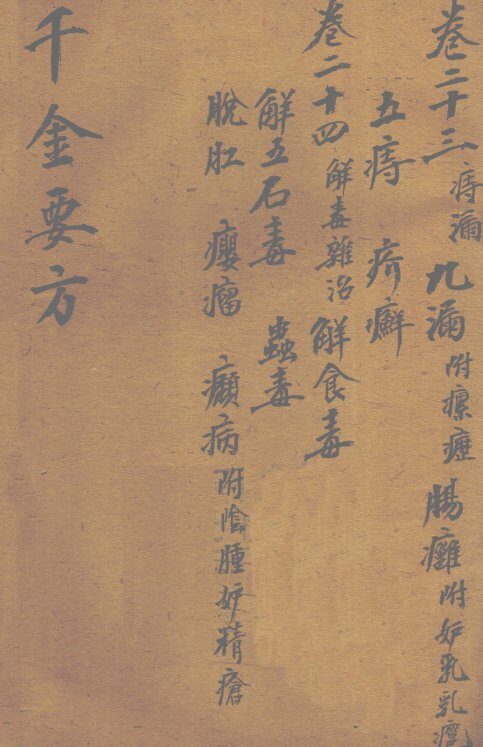 卷二十三 痔漏 九漏 附瘰癧 腸癰 附妒乳乳癰
五痔 疥癬
卷二十四 解毒雜治 解食毒
解五石毒 蠱毒
脫肛 癭瘤 癲病 附陰腫妒精瘡
千金要方